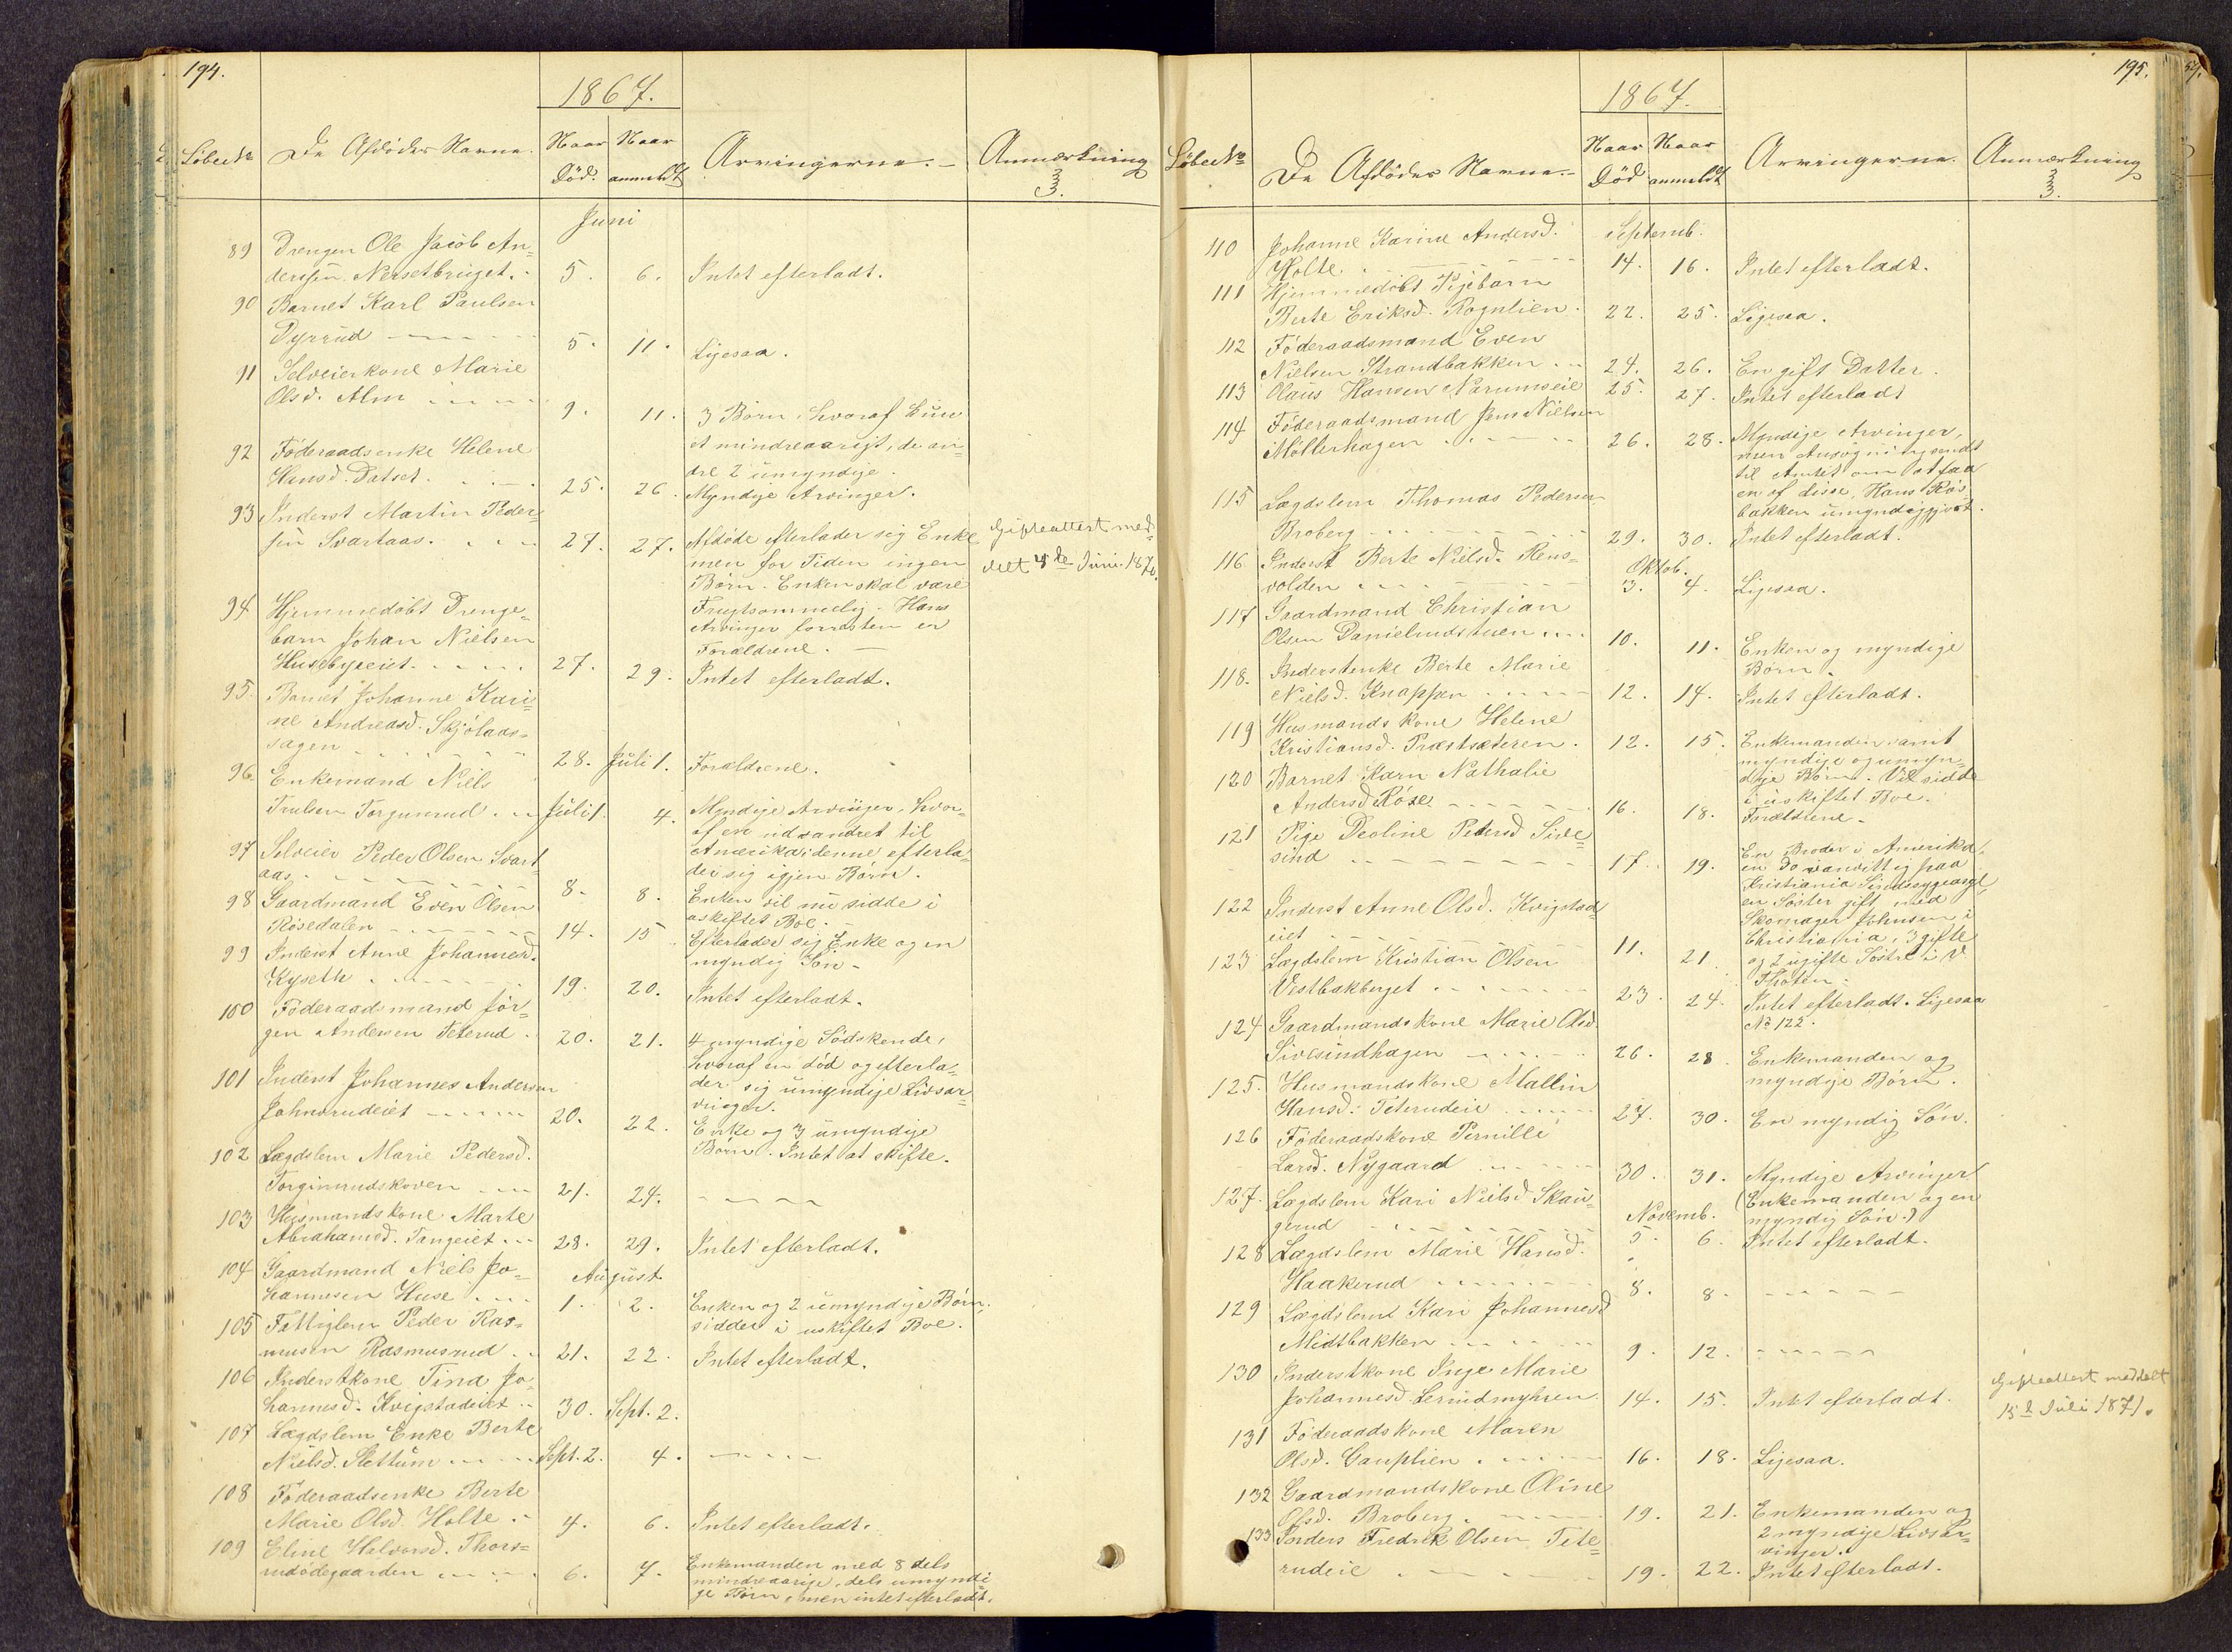 194.
1867.
Löbe No
De Afdödes Navne.
Naar Död.
Naar anmeldt
Arvingerne.
Anmærkning
3.
Juni
89 Drengen Ole Jacob An-
derssen Nersetbriget. 5. 6. Intet efterladt.
90 Barnet Karl Paulsen
Dyrrud 5. 11. Ligesaa.
91 Selveierkone Marie
Olsd. Alm 9. 11. 3 Börn, hvoraf kun
et mindreaarigt, de an-
dre 2 umyndige.
92 Föderaadsenke Helene
Hansd. Datset. 25. 26. Myndige Arvinger.
93 Inderst Martin Peder-
sen Svartaas. 27. 27. Afdöde efterlader sig Enke
men for Tiden ingen
Börn. Enken skal være
Frugtsommelig. Hans
Arvinger forresten er
Forældrene.
Gifteattest med-
delt 4de Juni 1870.
94 Hjemmedöbt Drenge-
barn Johan Nielsen
Husebyeiet. 27. 29. Intet efterladt.
95. Barnet Johanne Kari-
ne Andreasd. Skjölaas-
sagen 28. Juli 1. Forældrene.
96. Enkemand Niels
Trulsen Torgunrud Juli 1. 4. Myndige Arvinger, hvor-
af en udvandret til
Amerika; denne efterla-
der sig igjen Börn.
97 Selveier Peder Olsen Svart
aas 8. 8. Enken vil nu sidde i
uskiftet Boe.
98 Gaardmand Even Olsen
Rösedalen 14. 15. Efterlader sig Enke og en
myndig Sön.
99 Inderst Anne Johannesd.
Kyseth 19. 20. Intet efterladt.
100 Föderaadsmand Jör-
gen Andersen Teterud. 20. 21. 4 myndige Södskende,
hvoraf en död og efterla-
der sig umyndige Livsar-
vinger.
101 Inderst Johannes Andersen
Johnsrudeiet 20. 22. Enke og 3 umyndige
Börn. Intet at skifte.
102 Lægdslem Marie Pedersd.
Torginrudskoven 21. 24.
103 Husmandskone Marte
Abrahamsd. Tangeiet 28. 29. Intet efterladt.
August
104 Gaardmand Niels Jo-
hannesen Huse 1. 2. Enken og 2 umyndige Börn.
sidder i uskiftet Boe.
105 Fattiglem Peder Ras-
musen Rasmusrud 21. 22. Intet efterladt.
106 Inderstkone Tina Jo-
hannesd. Kvigstadeiet 30. Sept. 2.
107 Lægdslem Enke Berte
Nielsd. Slettum Sept. 2. 4.
108 Föderaadsenke Berte
Marie Olsd. Holte 4. 6. Intet efterladt.
109 Eline Halvorsd. Thors-
rudödegaarden 6. 7. Enkemanden med 8 dels
mindreaarige, dels umyndi-
ge Börn, men intet efterladt.
195.
1867.
Löbe No
De Afdödes Navne.
Naar Död
Naar anmeldt
Arvingerne.
Anmærkning
3.
Septemb.
110 Johanne Karine Andersd.
Holte. 14. 16. Intet efterladt.
111 Hjemmedöbt Pigebarn
Berte Eriksd. Rognlien. 22. 25. Ligesaa.
112 Föderaadsmand Even
Nielsen Strandbakken 24. 26. En gift Datter.
113 Olaus Hansen Narumseie 25. 27. Intet efterladt
114 Föderaadsmand Jens Nielsen
Möllerhagen 26. 28. Myndige Arvinger,
men Ansögning sendt
til Amtet om at faa
en af disse, Hans Rös-
bakken umyndiggjort.
115 Lægdslem Thomas Pedersen
Broberg 29. 30. Intet efterladt.
Oktob.
116 Inderst Berte Nielsd. Rens-
volden 3. 4. Ligesaa.
117 Gaardmand Christian
Olsen Danielrudstuen 10. 11. Enken og myndige
Börn.
118. Inderstenke Berte Marie
Nielsd. Knappen 12. 14. Intet efterladt.
119 Husmandskone Helene
Kristiansd. Præstsæteren. 12. 15. Enkemanden samt
myndige og umyn-
dige Börn. Vil sidde
i uskiftet Boe.
120 Barnet Karn Nathalie
Andersd. Röse. 16. 18. Forældrene.
121 Pige Deoline Petersd Sive-
sind 17. 19. En Broder i Amerika,
en do vanvittig paa
Kristiania Sindssygeasyl,
en Söster gift med
Skomager Johnsen i
Christiania, 3 gifte
og 2 ugifte Söstre i V.
Thoten.
122 Inderst Anne Olsd. Kvigstad
eiet 11. 21.
123 Lægdslem Kristian Olsen
Vestbakberget 23. 24. Intet efterladt. Ligesaa
No 122.
124 Gaardmandskone Marie Olsd.
Sivesindhagen 26. 28. Enkemanden og
myndige Börn.
125. Husmandskone Mallin
Hansd. Teterudeie 27. 30. En myndig Sön.
126 Föderaadskone Pernille
Larsd. Nygaard 30. 31. Myndige Arvinger
(Enkemanden og en
myndig Sön.)
Novemb.
127. Lægdslem Kari Nielsd. Skau-
gerud 5. 6. Intet efterladt.
128 Lægdslem Marie Hansd.
Haakerud 8. 8.
129 Lægdslem Kari Johannesd
Midtbakken 9. 12.
130 Inderstkone Inge Marie
Johannesd. Lerudmyhren. 14. 15. Intet efterladt.
Gifteattest meddelt
15d Juli 1871.
131 Föderaadskone Maren
Olsd. Gauplien 16. 18. Ligesaa.
132 Gaardmandskone Oline
Olsd. Broberg. 19. 21. Enkemanden og
2 myndige Livsar-
vinger.
133 Inders Fredrik Olsen Tete-
rudeie 19. 22. Intet efterladt.